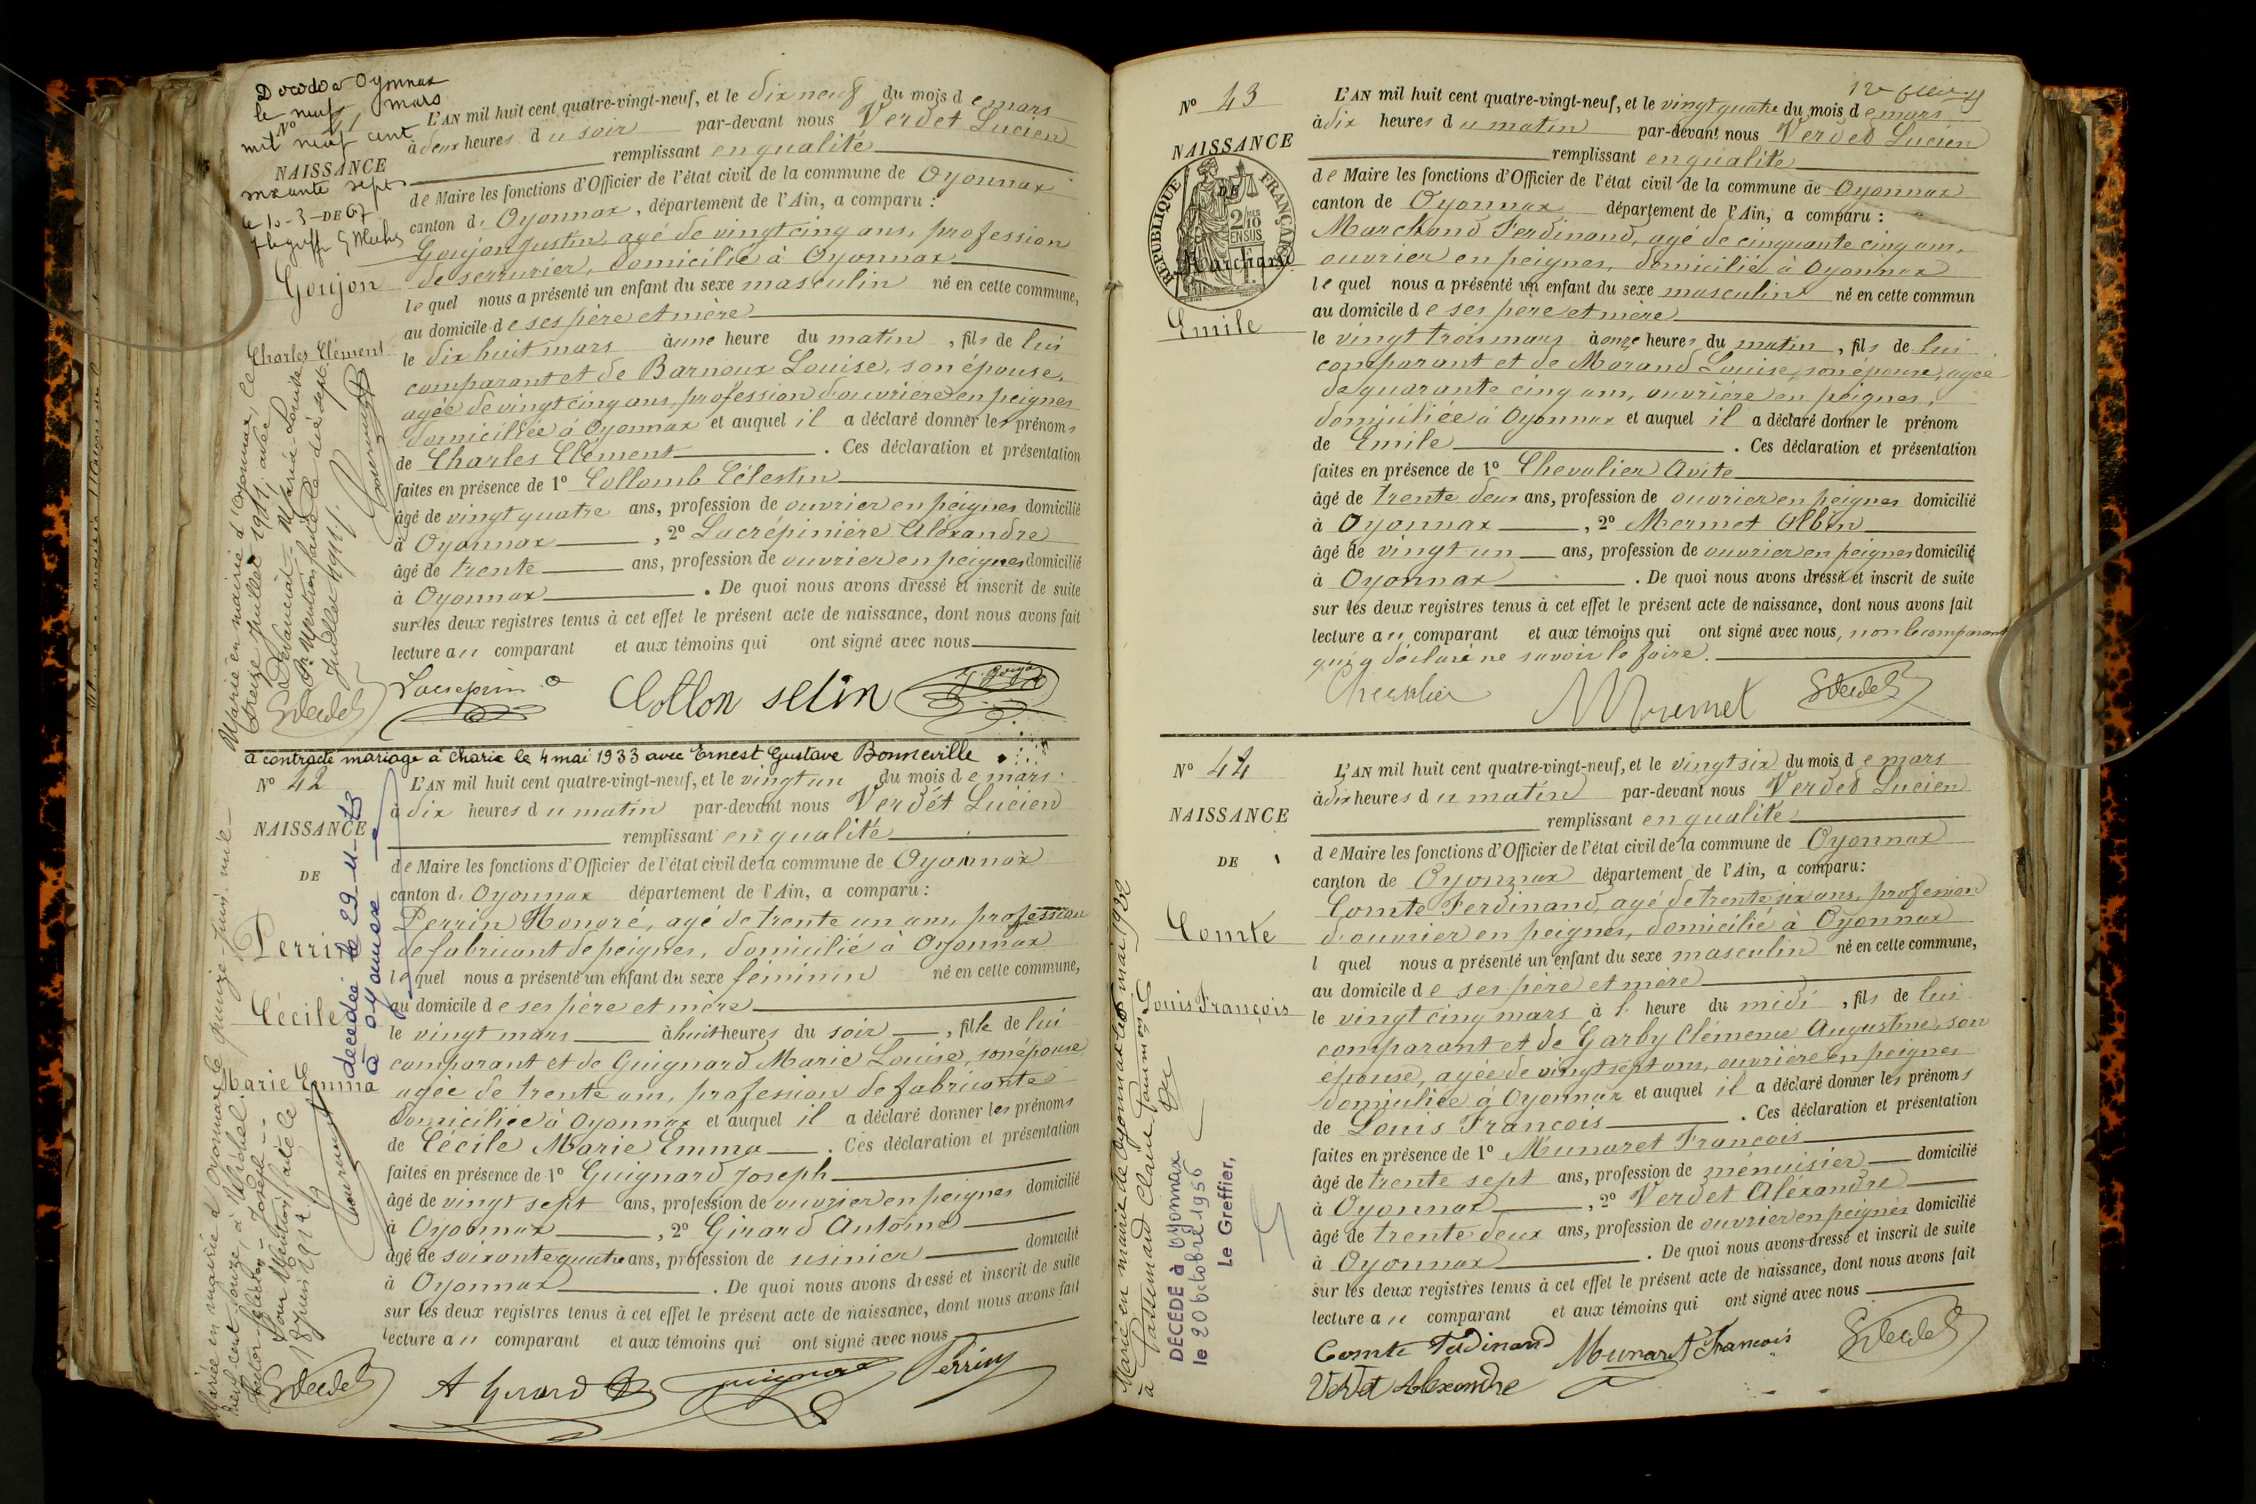 Décédé à Oyonnax
le neuf mars
mil neuf cent
soixante sept
le 10-3-DE 67
N° 41
NAISSANCE
Goujon
Charles Clément
L'AN mil huit cent quatre-vingt-neuf, et le dix neuf du mois de mars
à deux heures du soir par-devant nous Verdet Lucien
remplissant en qualité
de Maire les fonctions d'Officier de l'état civil de la commune de Oyonnax
canton d. Oyonnax, département de l'Ain, a comparu :
Goujon Justin, agé de vingt cinq ans, profession
de serrurier, domicilié à Oyonnax
lequel nous a présenté un enfant du sexe masculin né en cette commune,
au domicile de ses père et mère
le dix huit mars à une heure du matin, fils de lui
comparant et de Barnoux Louise, son épouse,
agée de vingt cinq ans, profession d'ouvrière en peignes
domiciliée à Oyonnax et auquel il a déclaré donner les prénoms
de Charles Clément. Ces déclaration et présentation
faites en présence de 1° Collomb Célestin
âgé de vingt quatre ans, profession de ouvrier en peignes domicilié
à Oyonnax, 2° Lacrépinière Alexandre
âgé de trente ans, profession de ouvrier en peignes domicilié
à Oyonnax. De quoi nous avons dressé et inscrit de suite
sur les deux registres tenus à cet effet le présent acte de naissance, dont nous avons fait
lecture au comparant et aux témoins qui ont signé avec nous
Marié en mairie d'Oyonnax, le
treize juillet 1911, avec
Marie-Louise
Pr Mention faite le dix sept
Juillet 1911.
a contracté mariage à Charix le 4 mai 1933 avec Ernest Gustave Bonneville.
N° 42
NAISSANCE
DE
Perrin
Cécile
Marie Emma
décédée le 29-11-73
à oyonnax
L'AN mil huit cent quatre-vingt-neuf, et le vingt un du mois de mars
à dix heures du matin par-devant nous Verdet Lucien
remplissant en qualité
de Maire les fonctions d'Officier de l'état civil de la commune de Oyonnax
canton d. Oyonnax département de l'Ain, a comparu :
Perrin Honoré, agé de trente un ans, profession
de fabricant de peignes, domicilié à Oyonnax
lequel nous a présenté un enfant du sexe féminin né en cette commune,
au domicile de ses père et mère
le vingt mars à huit heures du soir, fille de lui
comparant et de Guignard Marie Louise, son épouse
agée de trente ans, profession de fabricante
domiciliée à Oyonnax et auquel il a déclaré donner les prénoms
de Cécile Marie Emma. Ces déclaration et présentation
faites en présence de 1° Guignard Joseph
âgé de vingt sept ans, profession de ouvrier en peignes domicilié
à Oyonnax, 2° Girard Antoine
âgé de soixante quatre ans, profession de usinier domicilié
à Oyonnax. De quoi nous avons dressé et inscrit de suite
sur les deux registres tenus à cet effet le présent acte de naissance, dont nous avons fait
lecture au comparant et aux témoins qui ont signé avec nous
Perrin
Mariée en mairie d'Oyonnax le quinze juin mil
neuf cent
Pour Mention faite le
18 juin 191
N° 43
NAISSANCE
DE
REPUBLIQUE FRANÇAISE
2/10 EN SUS
Marchand
Emile
L'AN mil huit cent quatre-vingt-neuf, et le vingt quatre du mois de mars
à dix heures du matin par-devant nous Verdet Lucien
remplissant en qualité
de Maire les fonctions d'Officier de l'état civil de la commune de Oyonnax
canton de Oyonnax département de l'Ain, a comparu :
Marchand Ferdinand, agé de cinquante cinq ans,
ouvrier en peignes, domicilié à Oyonnax
lequel nous a présenté un enfant du sexe masculin né en cette commun
au domicile de ses père et mère
le vingt trois mars à onze heures du matin, fils de lui
comparant et de Morand Louise, son épouse, agée
de quarante cinq ans, ouvrière en peignes,
domiciliée à Oyonnax et auquel il a déclaré donner le prénom
de Emile. Ces déclaration et présentation
faites en présence de 1° Chevalier Avite
âgé de trente deux ans, profession de ouvrier en peignes domicilié
à Oyonnax, 2° Mermet Albin
âgé de vingt un ans, profession de ouvrier en peignes domicilié
à Oyonnax. De quoi nous avons dressé et inscrit de suite
sur les deux registres tenus à cet effet le présent acte de naissance, dont nous avons fait
lecture au comparant et aux témoins qui ont signé avec nous, non le comparant
qui a déclaré ne savoir le faire.
Chevalier
N° 44
NAISSANCE
DE
Comte
Louis François
L'AN mil huit cent quatre-vingt-neuf, et le vingt six du mois de mars
à dix heures du matin par-devant nous Verdet Lucien
remplissant en qualité
de Maire les fonctions d'Officier de l'état civil de la commune de Oyonnax
canton de Oyonnax département de l'Ain, a comparu:
Comte Ferdinand, agé de trente six ans, profession
d'ouvrier en peignes, domicilié à Oyonnax
l quel nous a présenté un enfant du sexe masculin né en cette commune,
au domicile de ses père et mère
le vingt cinq mars à 1. heure du midi, fils de lui
comparant et de Garby Clémence Augustine, son
épouse, agée de vingt sept ans, ouvrière en peignes
domiciliée à Oyonnax et auquel il a déclaré donner les prénoms
de Louis François. Ces déclaration et présentation
faites en présence de 1° Munaret François
âgé de trente sept ans, profession de ménuisier domicilié
à Oyonnax, 2° Verdet Aléxandre
âgé de trente deux ans, profession de ouvrier en peignes domicilié
à Oyonnax. De quoi nous avons dressé et inscrit de suite
sur les deux registres tenus à cet effet le présent acte de naissance, dont nous avons fait
lecture au comparant et aux témoins qui ont signé avec nous
Comte Ferdinand Munaret François
Verdet Alexandre
DECEDE à Oyonnax
le 20 octobre 1956
Le Greffier,